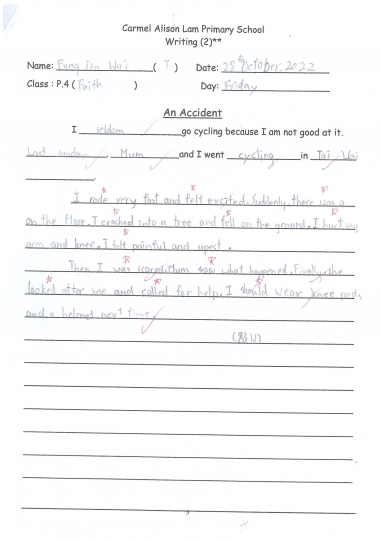 Carmel Alison Lam Primary School
Writing (2)**
Name: Fung Jin Wai ( 7 ) Date: 28th October, 2022
Class : P.4 ( Faith ) Day: Friday
An Accident
I seldom go cycling because I am not good at it.
Last Sunday, Mum and I went cycling in Tai Wai
I rode very fast and felt excited. Suddenly, there was a
on the floor. I crashed into a tree and fell on the ground. I hurt my
arm and knee. I felt painful and upset.
Then I was scared. Mum saw what happened. Finally, she
looked after me and called for help. I should wear knee pads
and a helmet next time.
(83 W)